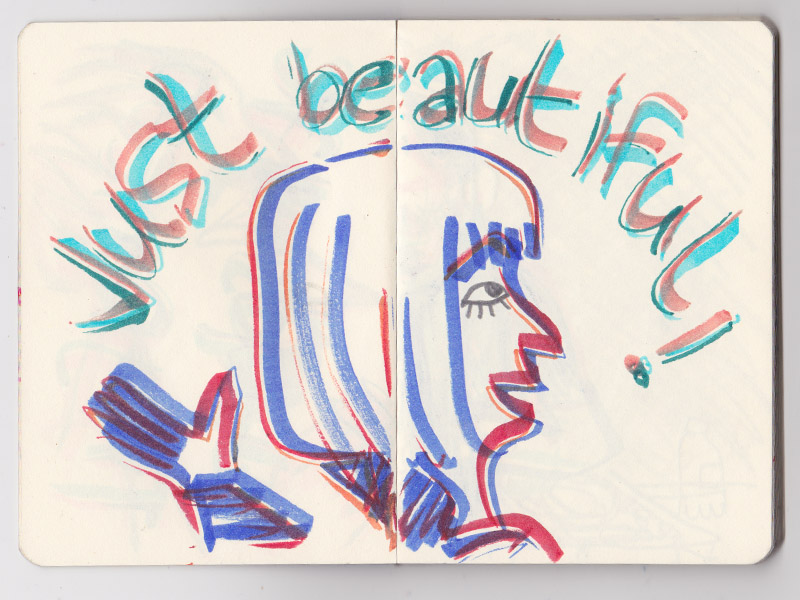 Just beautiful!